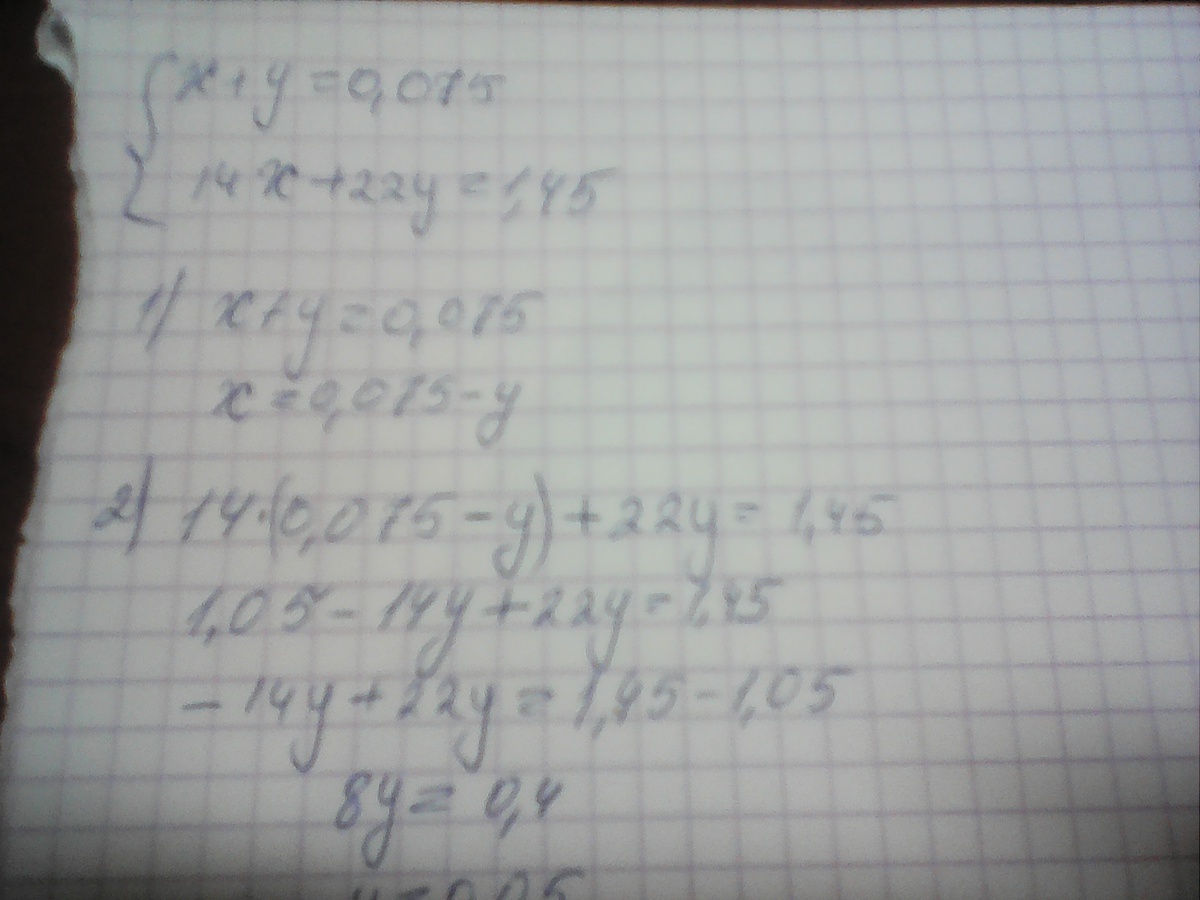 x+y=0,075
14x+22y=1,45
1) x+y=0,075
x=0,075-y
2) 14·(0,075-y)+22y=1,45
1,05-14y+22y=1,45
-14y+22y=1,45-1,05
8y=0,4
y=0,05